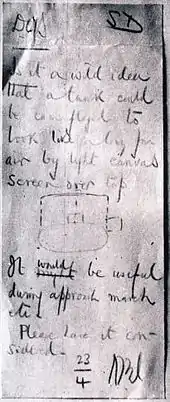 Is it a wild idea
that a tank could
be camouflaged to
look like a lorry from
air by light canvas
screen over top
It would be useful
during approach march
etc.
Please have it con-
sidered.
23
4